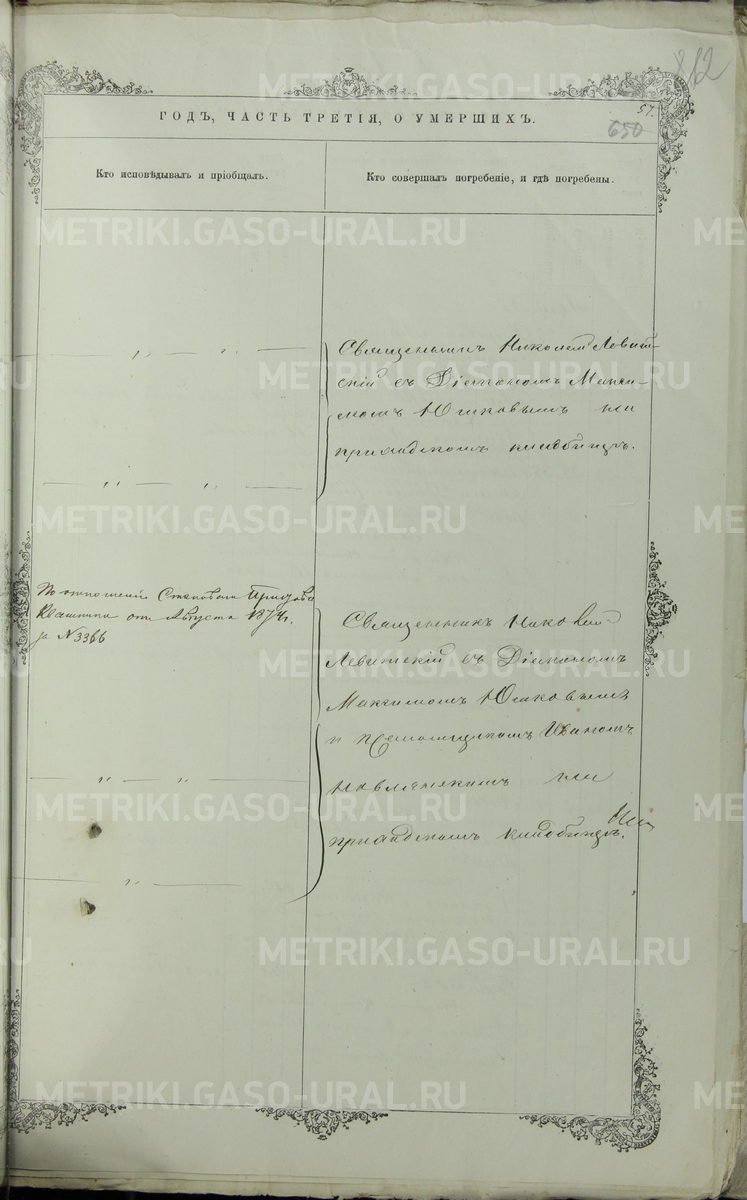 812
57.
650
ГОДЪ, ЧАСТЬ ТРЕТІЯ, О УМЕРШИХЪ.
Кто исповѣдывалъ и пріобщалъ.
Кто совершалъ погребеніе, и гдѣ погребены.
Священникъ Николай Левит-
скій съ Діакономъ Макси-
момъ Юшковымъ на
приходскомъ кладбищѣ.
По отношенію Становаго Пристава
Квашнина отъ Августа 1874 г.
за № 3366
Священникъ Николай
Левитскій съ Діакономъ
Максимомъ Юшковымъ
и псаломщикомъ Иваномъ
на
приходскомъ кладбищѣ.
METRIKI.GASO-URAL.RU